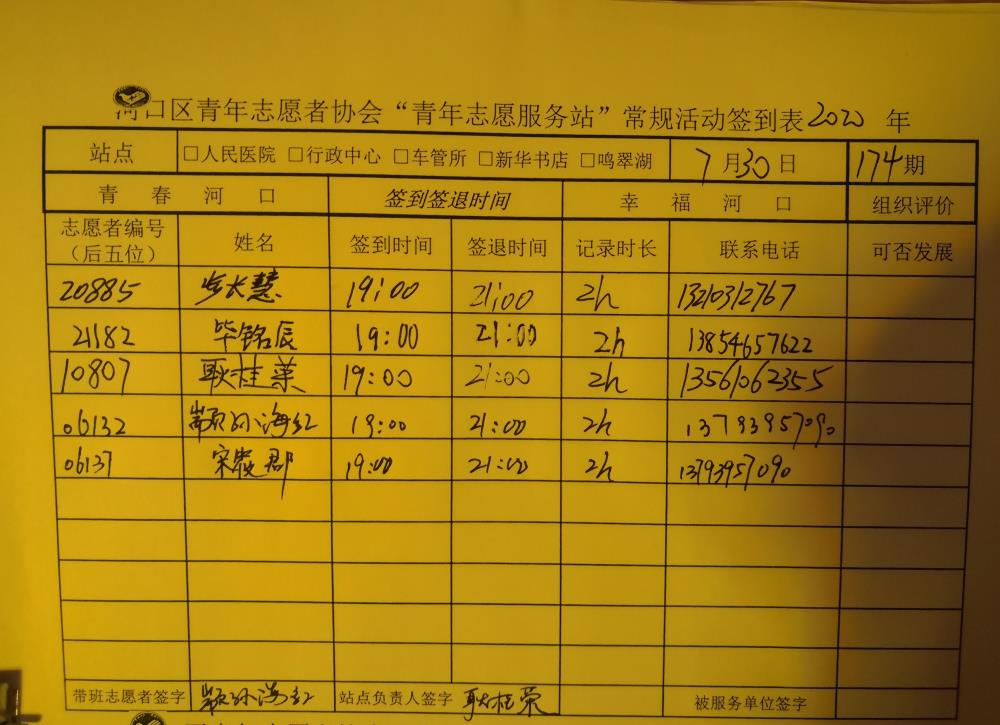 河口区青年志愿者协会“青年志愿服务站”常规活动签到表2020 年
站点 □人民医院 □行政中心 □车管所 □新华书店 □鸣翠湖 7月30日 174期
青 春 河 口 签到签退时间 幸 福 河 口 组织评价
志愿者编号（后五位） 姓名 签到时间 签退时间 记录时长 联系电话 可否发展
20885 步长慧 19:00 21:00 2h 13210312767
21182 毕铭辰 19:00 21:00 2h 13854657622
10807 耿桂荣 19:00 21:00 2h 13561062355
06132 颛孙海红 19:00 21:00 2h 13793957090
06137 宋俊郡 19:00 21:00 2h 13793957090
带班志愿者签字 颛孙海红 站点负责人签字 耿桂荣 被服务单位签字